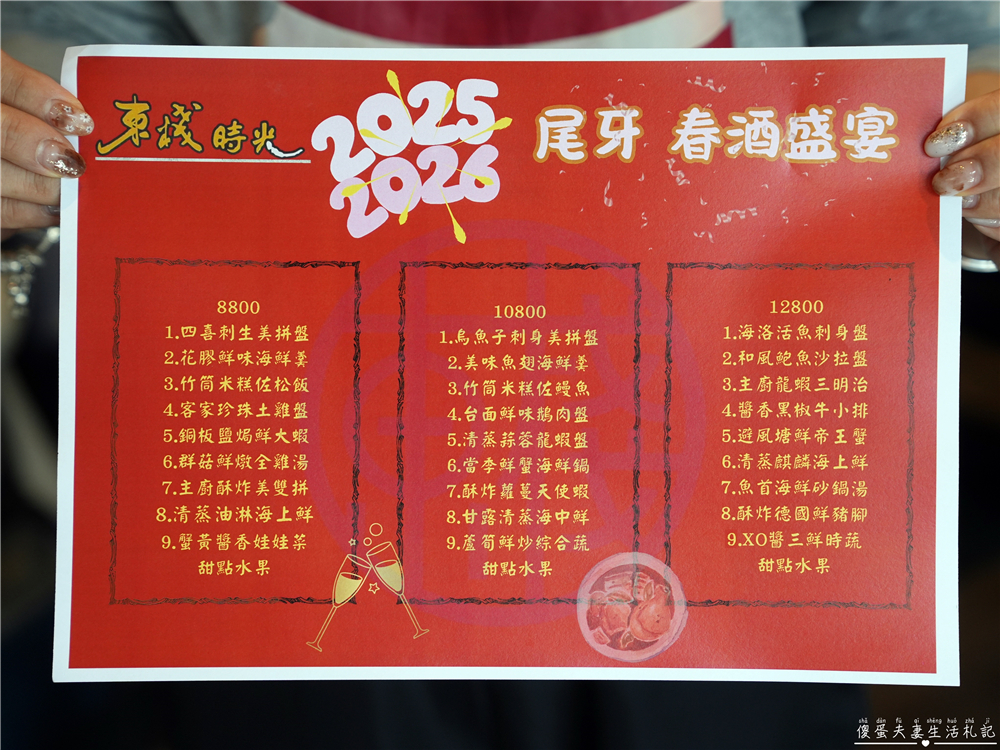 東棧時光
2025
2026
尾牙 春酒盛宴
8800
1.四喜刺生美拼盤
2.花膠鮮味海鮮羹
3.竹筒米糕佐松飯
4.客家珍珠土雞盤
5.銅板鹽焗鮮大蝦
6.群菇鮮燉全雞湯
7.主廚酥炸美雙拼
8.清蒸油淋海上鮮
9.蟹黃醬香娃娃菜
甜點水果
10800
1.烏魚子刺身美拼盤
2.美味魚翅海鮮羹
3.竹筒米糕佐鰻魚
4.台面鮮味鵝肉盤
5.清蒸蒜蓉龍蝦盤
6.當季鮮蟹海鮮鍋
7.酥炸蘿蔓天使蝦
8.甘露清蒸海中鮮
9.蘆筍鮮炒綜合蔬
甜點水果
12800
1.海洛活魚刺身盤
2.和風鮑魚沙拉盤
3.主廚龍蝦三明治
4.醬香黑椒牛小排
5.避風塘鮮帝王蟹
6.清蒸麒麟海上鮮
7.魚首海鮮砂鍋湯
8.酥炸德國鮮豬腳
9.XO醬三鮮時蔬
甜點水果
shǎ dàn fū qī shēng huó zhá jì
傻蛋夫妻生活札記